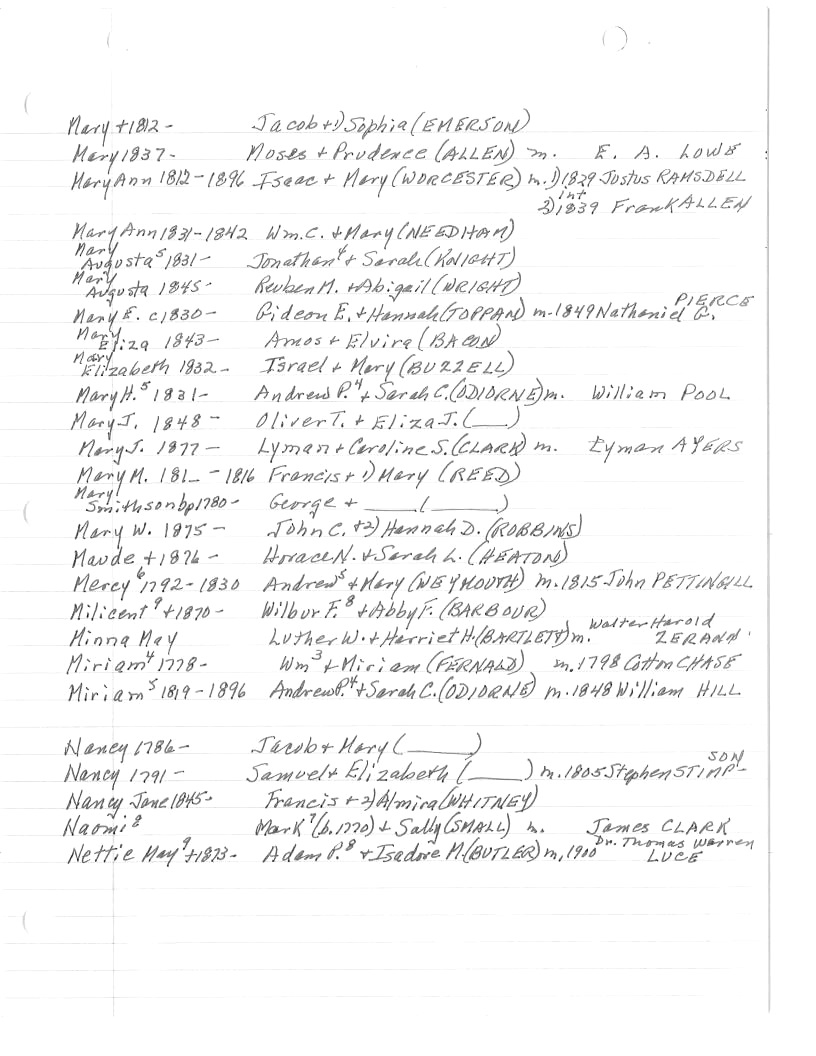 Mary +1812 - Jacob + 1) Sophia (EMERSON)
Mary 1837 - Moses + Prudence (ALLEN) m. E. A. LOWE
Mary Ann 1812 - 1896 Isaac + Mary (WORCESTER) m. 1) 1829 Justus RAMSDELL
int
2) 1839 Frank ALLEN
Mary Ann 1831 - 1842 Wm. C. + Mary (NEEDHAM)
Mary
Augusta⁵ 1831 - Jonathan⁴ + Sarah (KNIGHT)
Mary
Augusta 1845 - Reuben M. + Abigail (WRIGHT)
PIERCE
Mary E. c1830 - Gideon E. + Hannah (TOPPAN) m. 1849 Nathaniel G.
Mary
Eliza 1843 - Amos + Elvira (BACON)
Mary
Elizabeth 1832 - Israel + Mary (BUZZELL)
Mary H.⁵ 1831 - Andrew P.⁴ + Sarah C. (ODIORNE) m. William POOL
Mary J. 1848 - Oliver T. + Eliza J. (____)
Mary J. 1877 - Lyman + Caroline S. (CLARK) m. Lyman AYERS
Mary M. 181_ - 1816 Francis + 1) Mary (REED)
Mary
Smithson bp 1780 - George + _____ (_______)
Mary W. 1875 - John C. + 2) Hannah D. (ROBBINS)
Maude +1876 - Horace N. + Sarah L. (HEATON)
Mercy⁶ 1792 - 1830 Andrew⁵ + Mary (WEYMOUTH) m. 1815 John PETTINGILL
Milicent⁹ +1870 - Wilbur F.⁸ + Abby F. (BARBOUR)
Walter Harold
Minna May Luther W. + Harriet H. (BARTLETT) m. ZERANN
Miriam⁴ 1778 - Wm³ + Miriam (FERNALD) m. 1798 Cotton CHASE
Miriam⁵ 1819 - 1896 Andrew P.⁴ + Sarah C. (ODIORNE) m. 1848 William HILL
Nancy 1786 - Jacob + Mary (______)
SON
Nancy 1791 - Samuel + Elizabeth (_____) m. 1805 Stephen STIMP-
Nancy Jane 1845 - Francis + 2) Almira (WHITNEY)
Naomi⁸ Mark⁷ (b. 1770) + Sally (SMALL) m. James CLARK
Dr. Thomas Warren
Nettie May⁹ +1873 - Adam P.⁸ + Isadore M. (BUTLER) m, 1900 LUCE